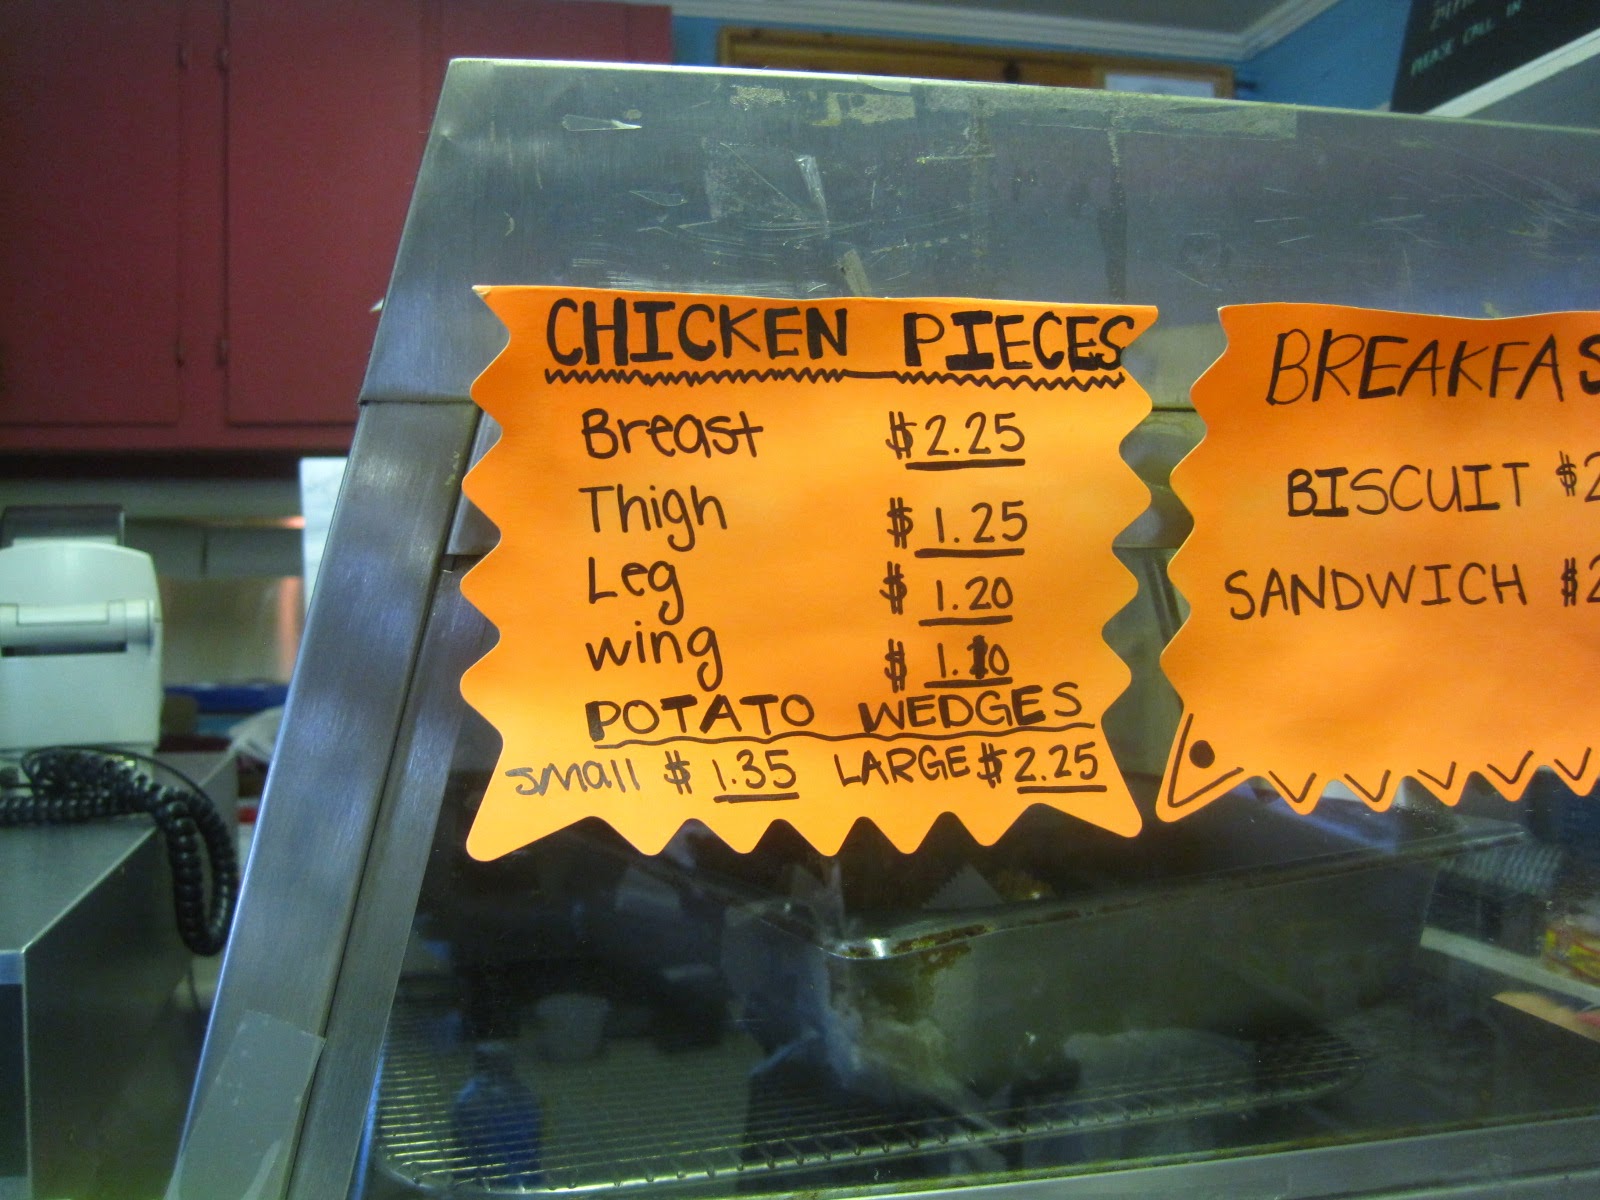 24 HR
PLEASE CALL IN
CHICKEN PIECES
Breast $2.25
Thigh $1.25
Leg $1.20
wing $1.10
POTATO WEDGES
small $1.35 LARGE $2.25
BREAKFAS
BISCUIT $2
SANDWICH $2